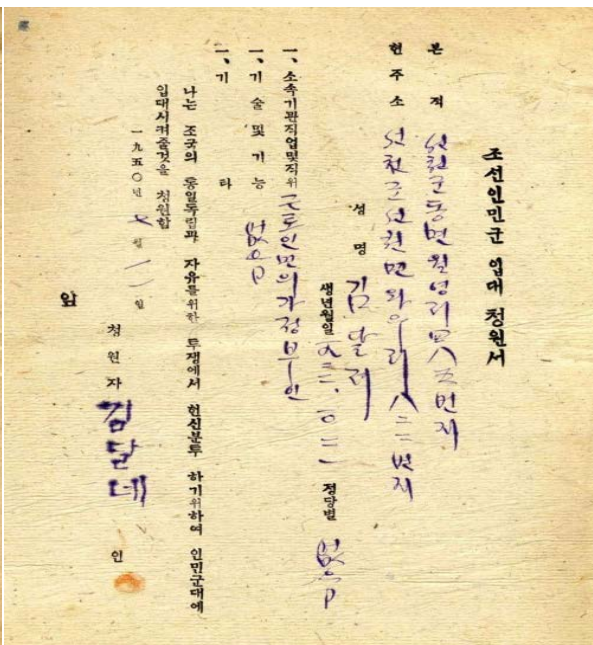 조선인민군 입대 청원서
본적 선천군동면월성리四八五번지
현주소 선천군선천면와우리八二二번지
성명 김달
생년월일 정당별 없음
一、소속기관직업및직위 인민의가정부인
一、기술및기능 없음
一、기타
나는 조국의 통일독립과 자유를위한 투쟁에서 헌신분투 하기위하여 인민군대에
입대시켜줄것을 청원함
一九五〇년 七월 一一일
청원자 김달네 인
앞